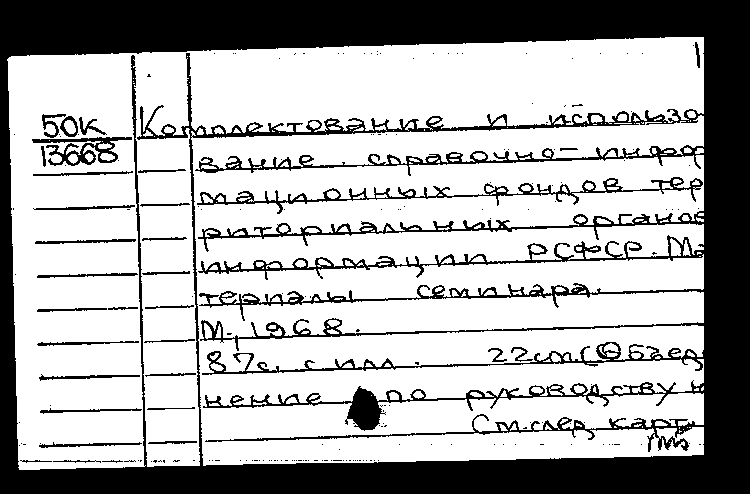 50К Комплектование и использо-
13668 вание справочно-инфор
мационных фондов тер
риториальных органов
информации РСФСР. Ма
териалы семинара.
М., 1968.
87с. с илл. 22см (Объеди
нение по руководству н
См.след.карт